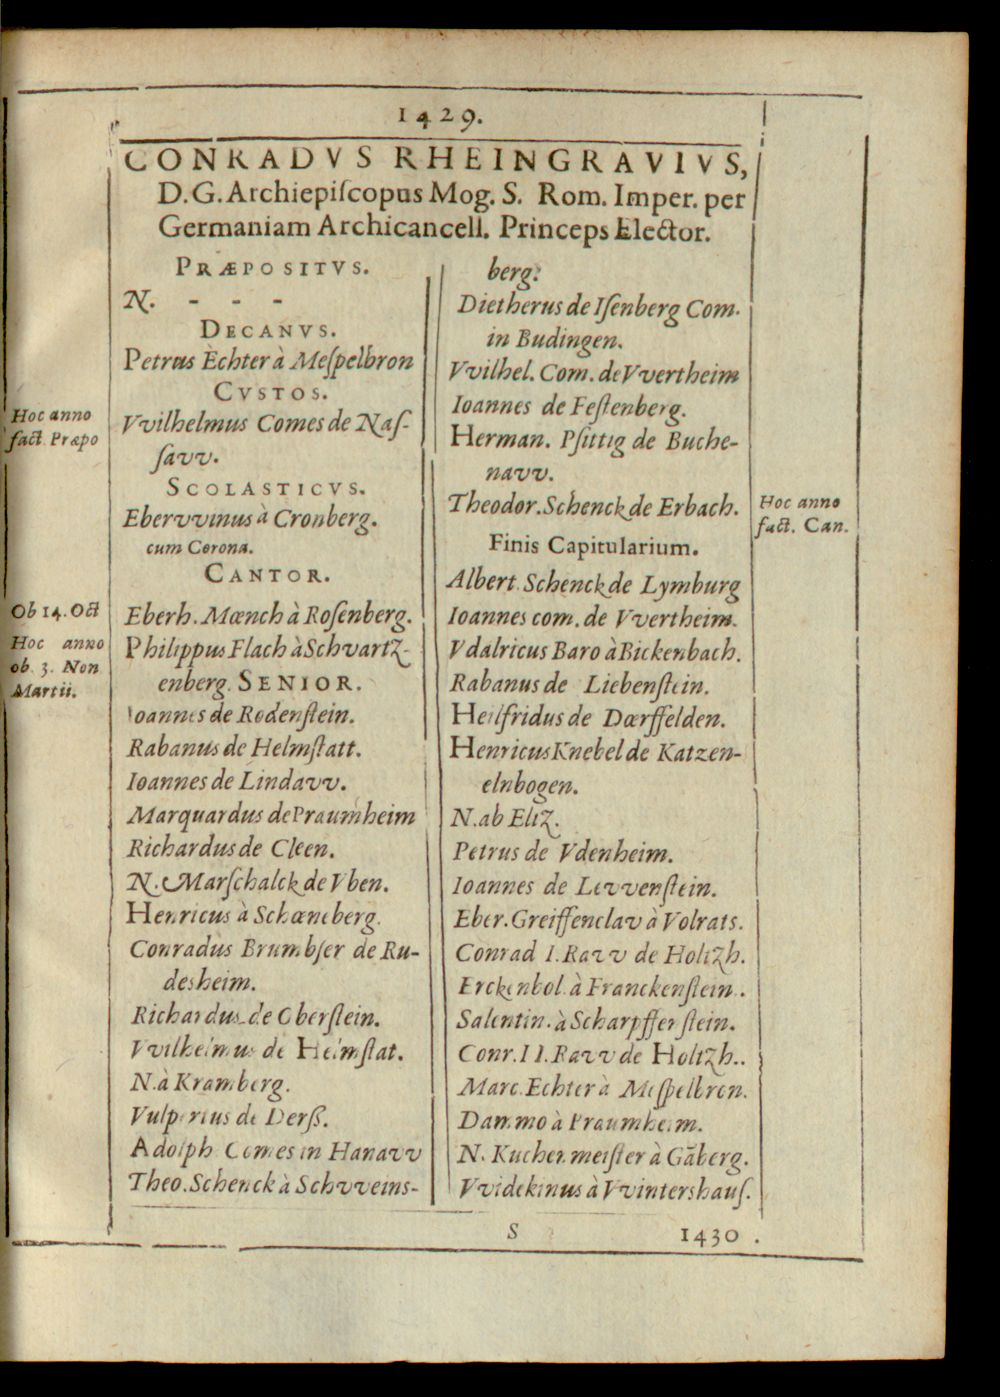 1429.
CONRADVS RHEINGRAVIVS,
D.G. Archiepiſcopus Mog. S. Rom. Imper. per
Germaniam Archicancell. Princeps Elector.
PRÆPOSITVS.
N. - - -
DECANVS.
Petrus Echter à Meſpelbron
CVSTOS.
Hoc anno
fact. Præpo
VVilhelmus Comes de Naſ-
ſavv.
SCOLASTICVS.
Ebervvinus à Cronberg.
cum Corona.
CANTOR.
Ob 14. Oct
Eberh. Mœnch à Roſenberg.
Hoc anno
ob. 3. Non
Martii.
Philippus Flach à Schvvartz-
enberg. SENIOR.
Ioannes de Rodenſtein.
Rabanus de Helmſtatt.
Ioannes de Lindavv.
Marquardus de Praumheim
Richardus de Cleen.
N. Marſchalck de Vben.
Henricus à Schœneberg.
Conradus Brumbſer de Ru-
desheim.
Richardus de Oberſtein.
VVilhelmus de Helmſtat.
N. à Kramberg.
Vulpertus de Derß.
Adolph Comes in Hanavv
Theo. Schenck à Schvveins-
berg.
Dietherus de Iſenberg Com.
in Budingen.
VVilhel. Com. de VVertheim
Ioannes de Feſtenberg.
Herman. Pſittig de Buche-
navv.
Theodor. Schenck de Erbach.
Hoc anno
fact. Can.
Finis Capitularium.
Albert. Schenck de Lymburg
Ioannes com. de VVertheim.
Vdalricus Baro à Bickenbach.
Rabanus de Liebenſtein.
Heilfridus de Dœrffelden.
Henricus Knebel de Katzen-
elnbogen.
N. ab Eltz.
Petrus de Vdenheim.
Ioannes de Levvenſtein.
Eber. Greiffenclav à Volrats.
Conrad I. Ravv de Holtzh.
Erckenbol. à Franckenſtein.
Salentin. à Scharpffenſtein.
Conr. II. Ravv de Holtzh..
Marc. Echter à Meſpelbron.
Dammo à Praumheim.
N. Kuchenmeiſter à Gāberg.
VVidekinus à VVintershauſ.
S
1430.